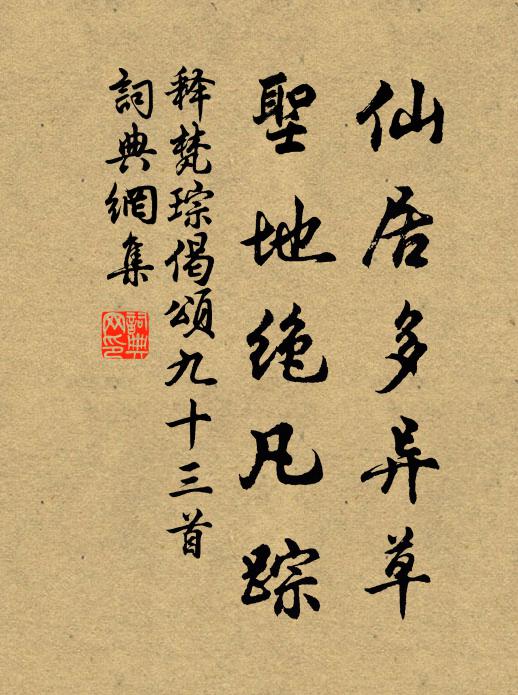 仙居多异草
聖地绝凡踪
释梵琮偈頌九十三首
詞典網集
詞典網印